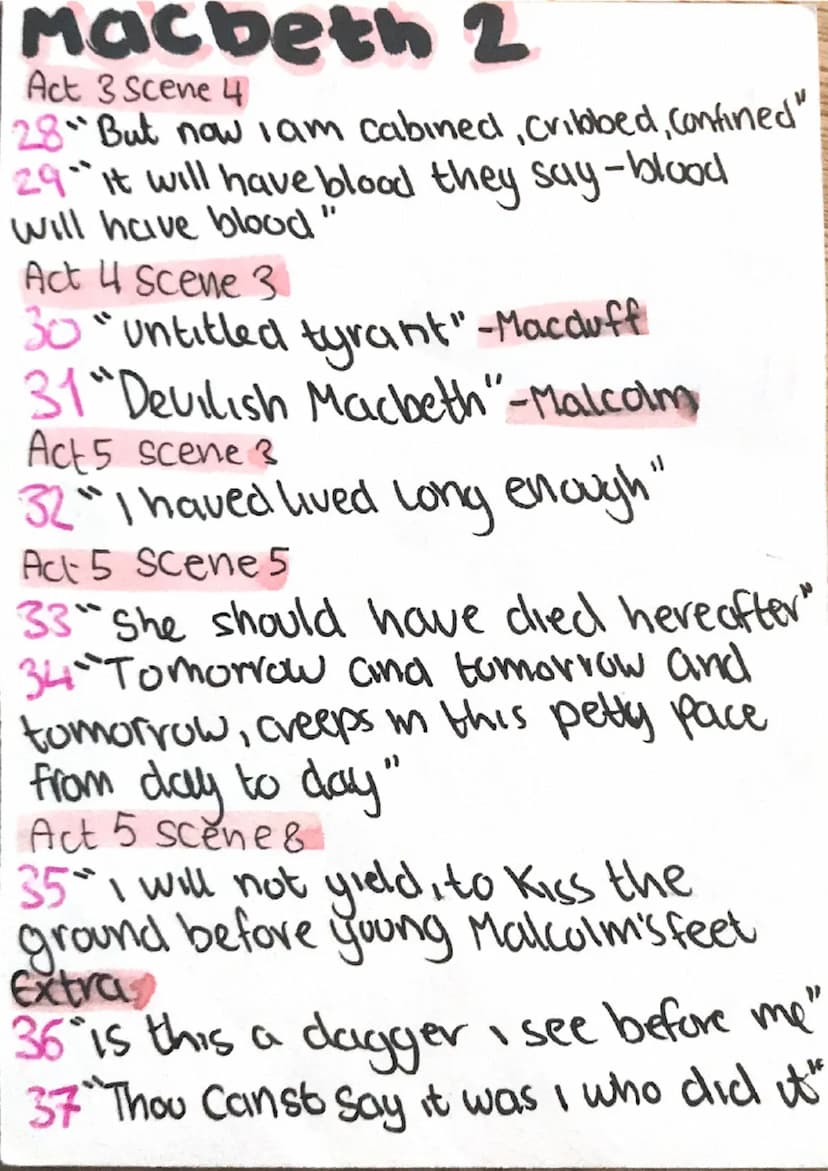 Macbeth 2
Act 3 Scene 4
28 "But now I am cabined, cribbed, confined"
29 "it will have blood they say - blood
will have blood"
Act 4 Scene 3
30 "untitled tyrant" - Macduff
31 "Devilish Macbeth" - Malcolm
Act 5 scene 3
32 "I haved lived long enough"
Act 5 Scene 5
33 "She should have died hereafter"
34 "Tomorrow and tomorrow and
tomorrow, creeps in this petty pace
from day to day"
Act 5 Scene 8
35 "I will not yield, to kiss the
ground before young Malcolm's feet
Extra
36 "is this a dagger I see before me"
37 "Thou Canst say it was I who did it"